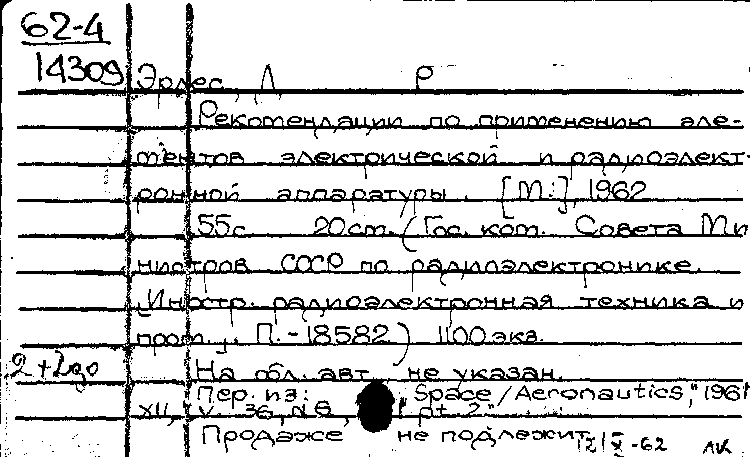 62-4
14309
Эрлес, Л. Р
Рекомендации по применению эле-
ментов электрической и радиоэлект-
ронной аппаратуры. [М.], 1962
55с. 20см. (Гос. ком. Совета Ми
нистров СССР по радиоэлектронике.
"Иностр. радиоэлектронная техника и
пром.". П.-18582) 1100 экз.
2+2до
На обл. авт. не указан.
Пер. из: "Space/Aeronautics," 1961
XII, v. 36, №6, pt 2"
Продаже не подлежит
12/X-62 ЛК